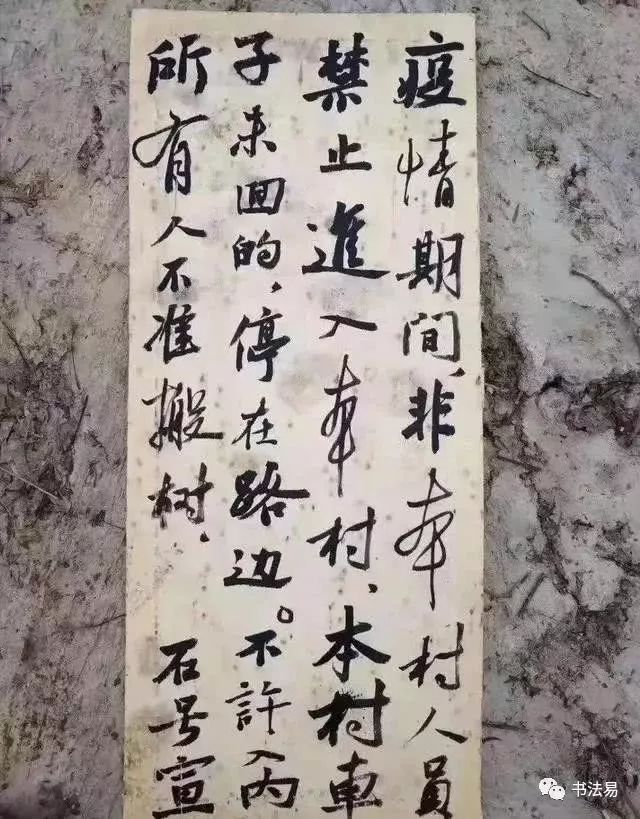 疫情期间，非本村人员
禁止進入本村、本村車
子未回的，停在路边。不許入内
所有人不准搬树．
石号宣
书法易